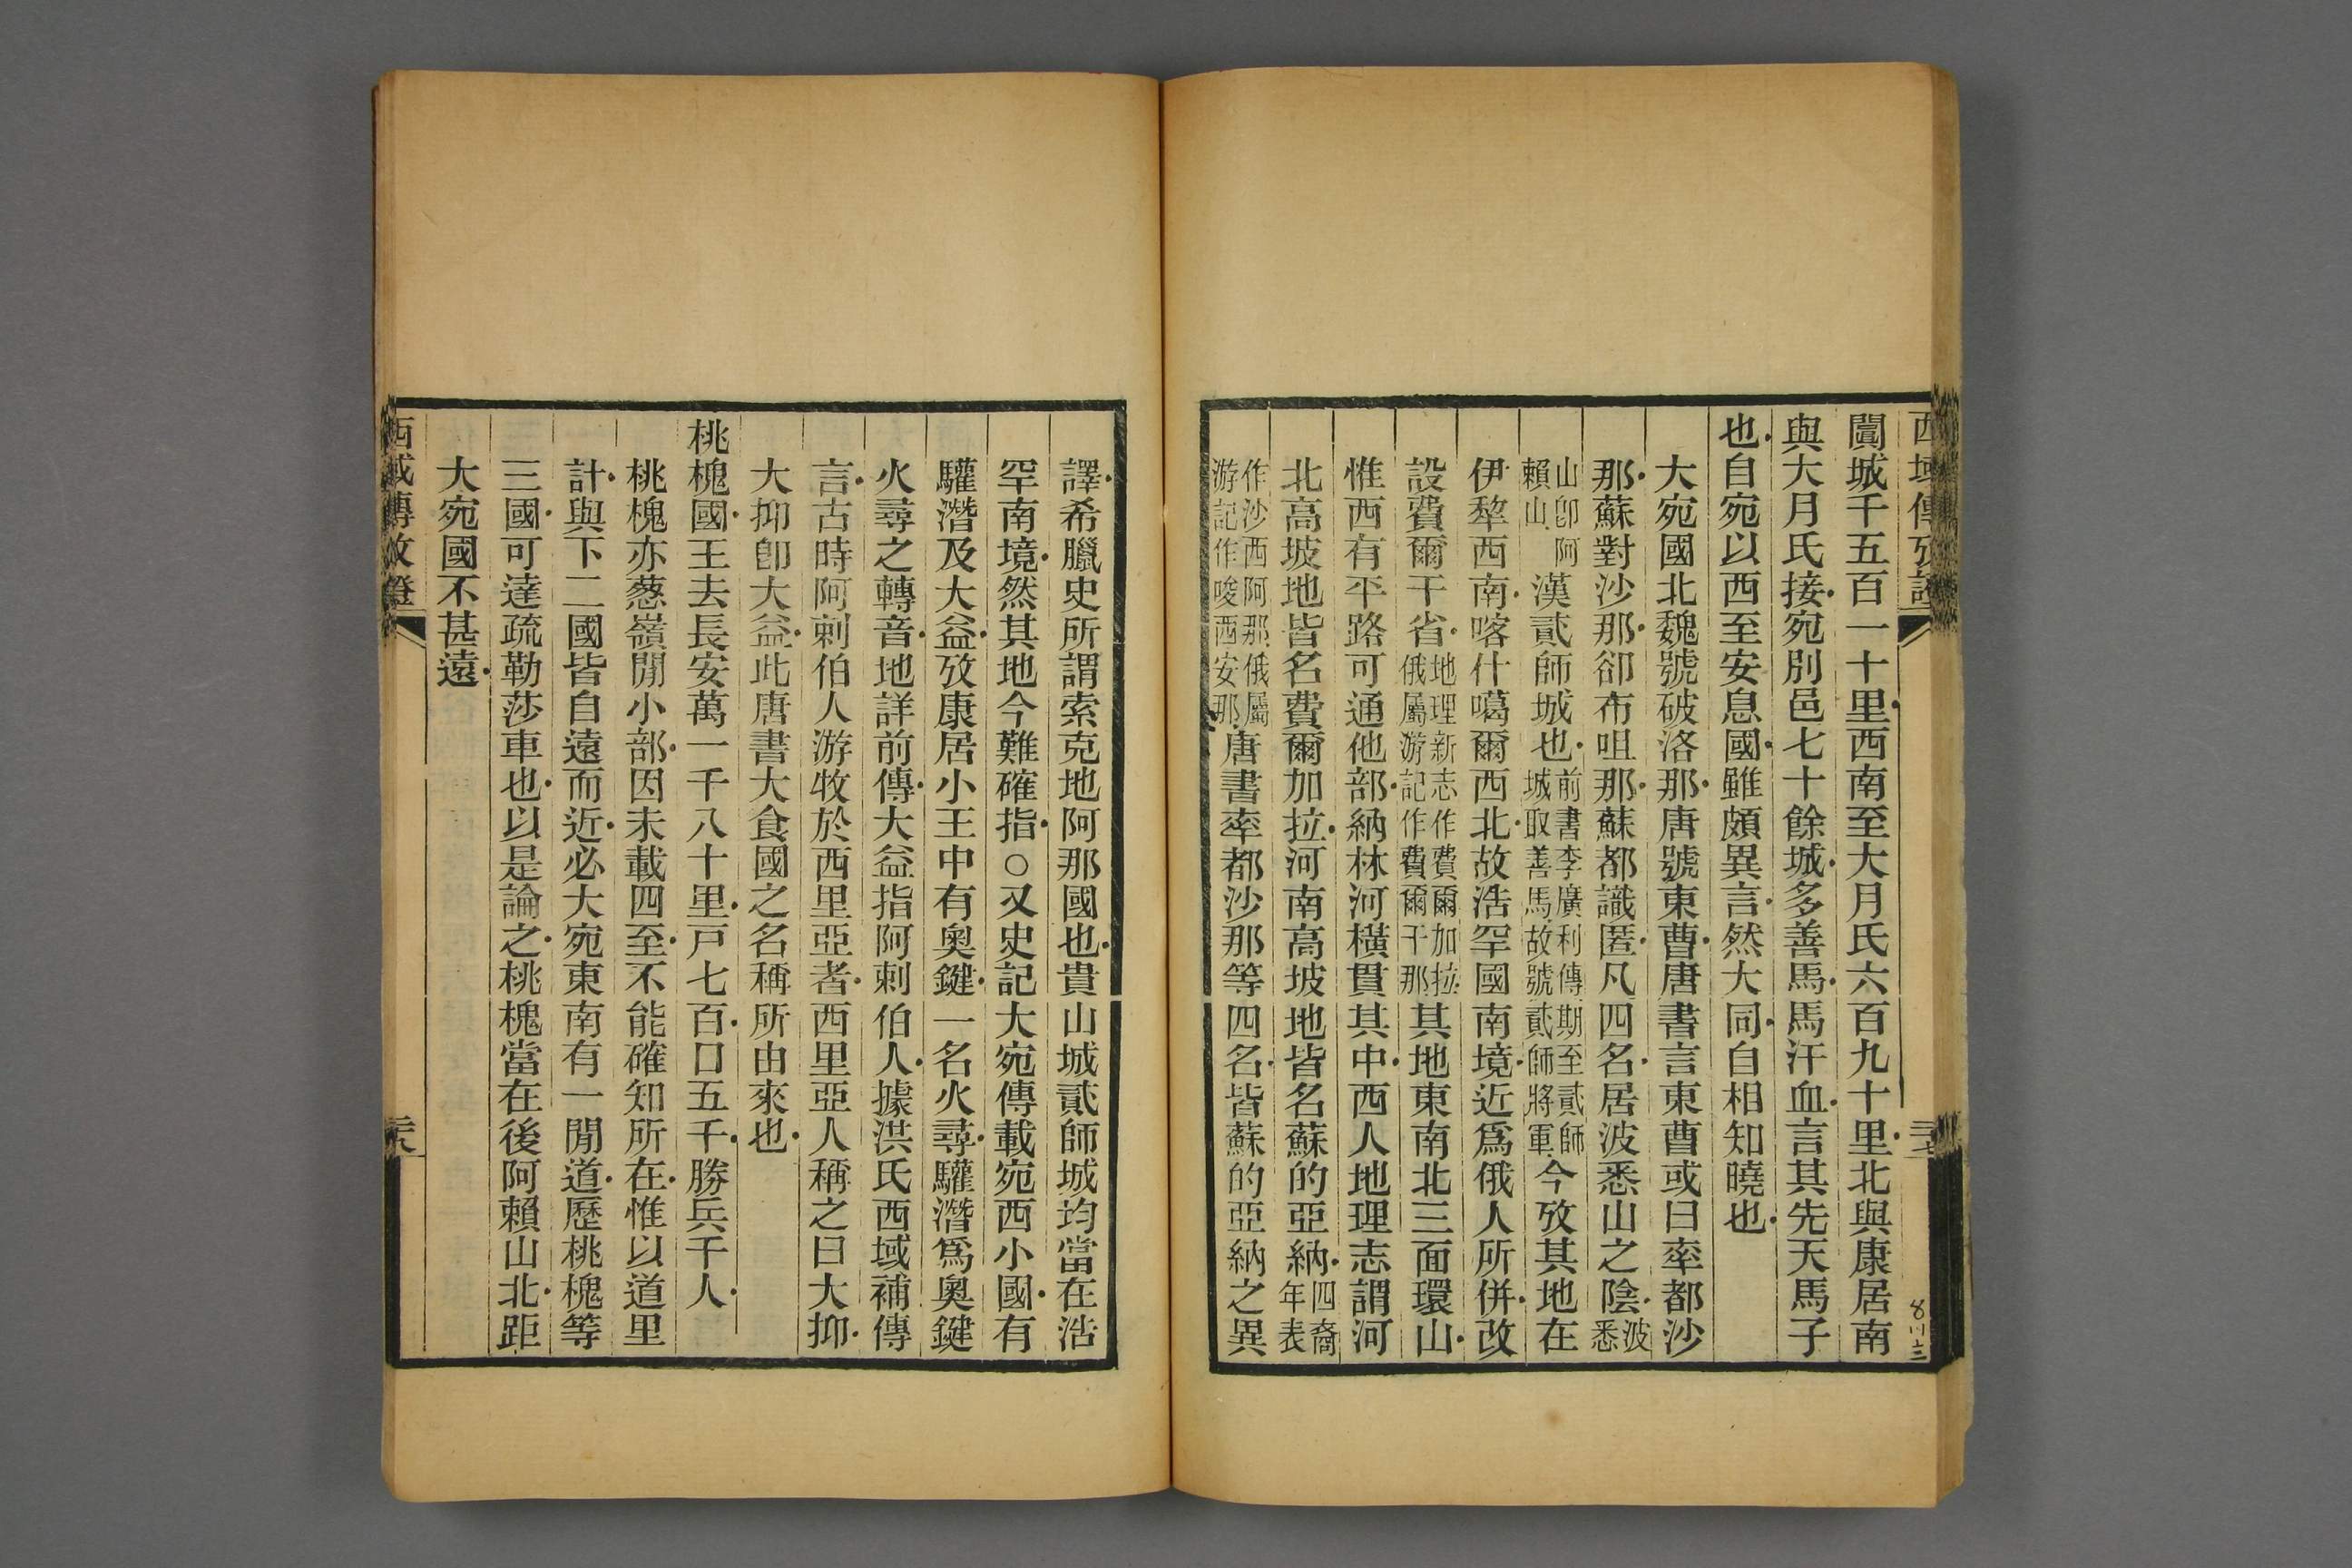 西域傳攷證
闐城千五百一十里西南至大月氏六百九十里北與康居南
與大月氏接宛別邑七十餘城多善馬馬汗血言其先天馬子
也自宛以西至安息國雖頗異言然大同自相知曉也
大宛國北魏號破洛那唐號東曹唐書言東曹或曰率都沙
那蘇對沙那卻布咀那蘇都識匿凡四名居波悉山之陰波悉
山卽阿賴山漢貳師城也前書李廣利傳期至貳師城取善馬故號貳師將軍今攷其地在
伊犂西南喀什噶爾西北故浩罕國南境近爲俄人所併改
設費爾干省地理新志作費爾加拉俄屬游記作費爾干那其地東南北三面環山
惟西有平路可通他部納林河橫貫其中西人地理志謂河
北高坡地皆名費爾加拉河南高坡地皆名蘇的亞納四裔年表
作沙西阿那俄屬游記作唆西安那唐書率都沙那等四名皆蘇的亞納之異
譯希臘史所謂索克地阿那國也貴山城貳師城均當在浩
罕南境然其地今難確指○又史記大宛傳載宛西小國有
驩潛及大益攷康居小王中有奧鍵一名火尋驩潛爲奧鍵
火尋之轉音地詳前傳大益指阿剌伯人據洪氏西域補傳
言古時阿剌伯人游牧於西里亞者西里亞人稱之曰大抑
大抑卽大益此唐書大食國之名稱所由來也
桃槐國王去長安萬一千八十里戸七百口五千勝兵千人
桃槐亦葱嶺閒小部因未載四至不能確知所在惟以道里
計與下二國皆自遠而近必大宛東南有一閒道歷桃槐等
三國可達疏勒莎車也以是論之桃槐當在後阿賴山北距
大宛國不甚遠
西域傳攷證
二十八